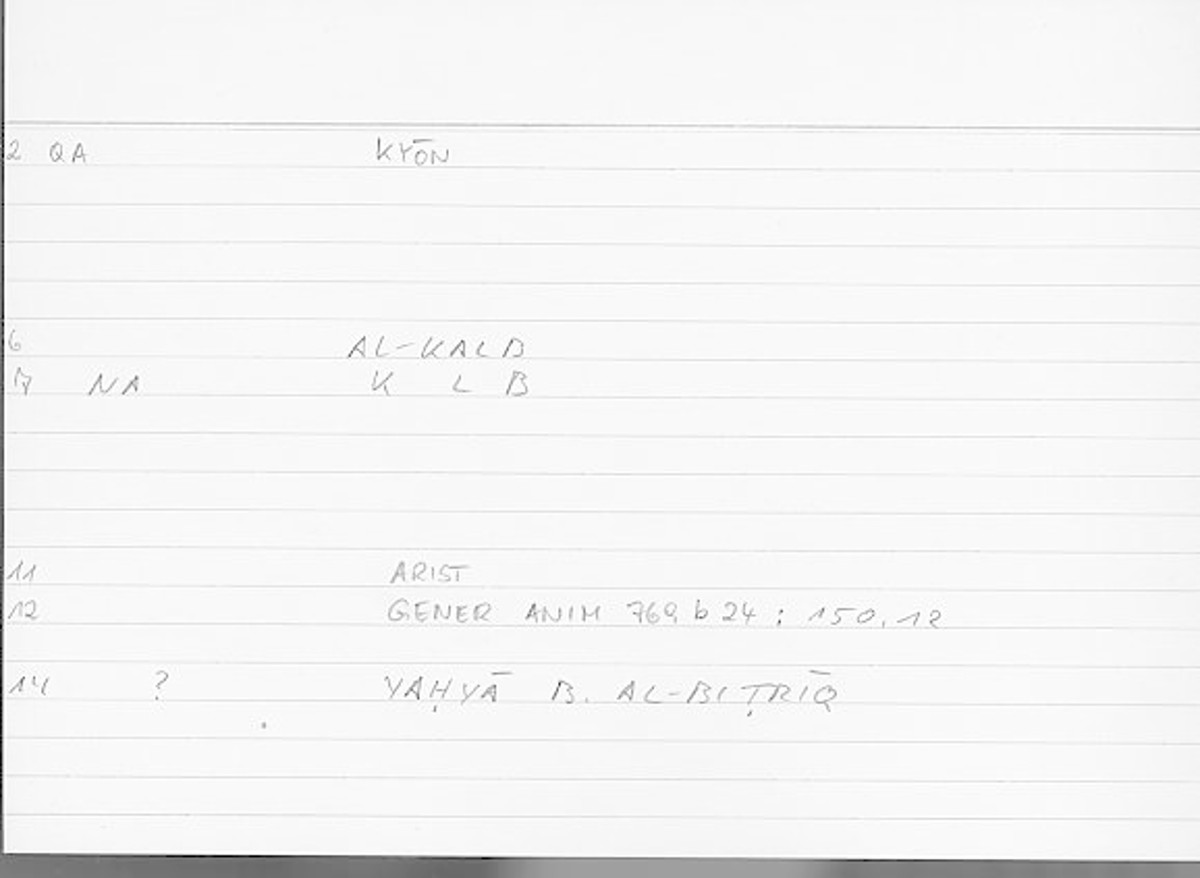 2 QA KYŌN
6 AL-KALB
7 NA K L B
11 ARIST
12 GENER ANIM 769 b 24 ; 150,12
14 ? YAḤYĀ B. AL-BIṬRĪQ